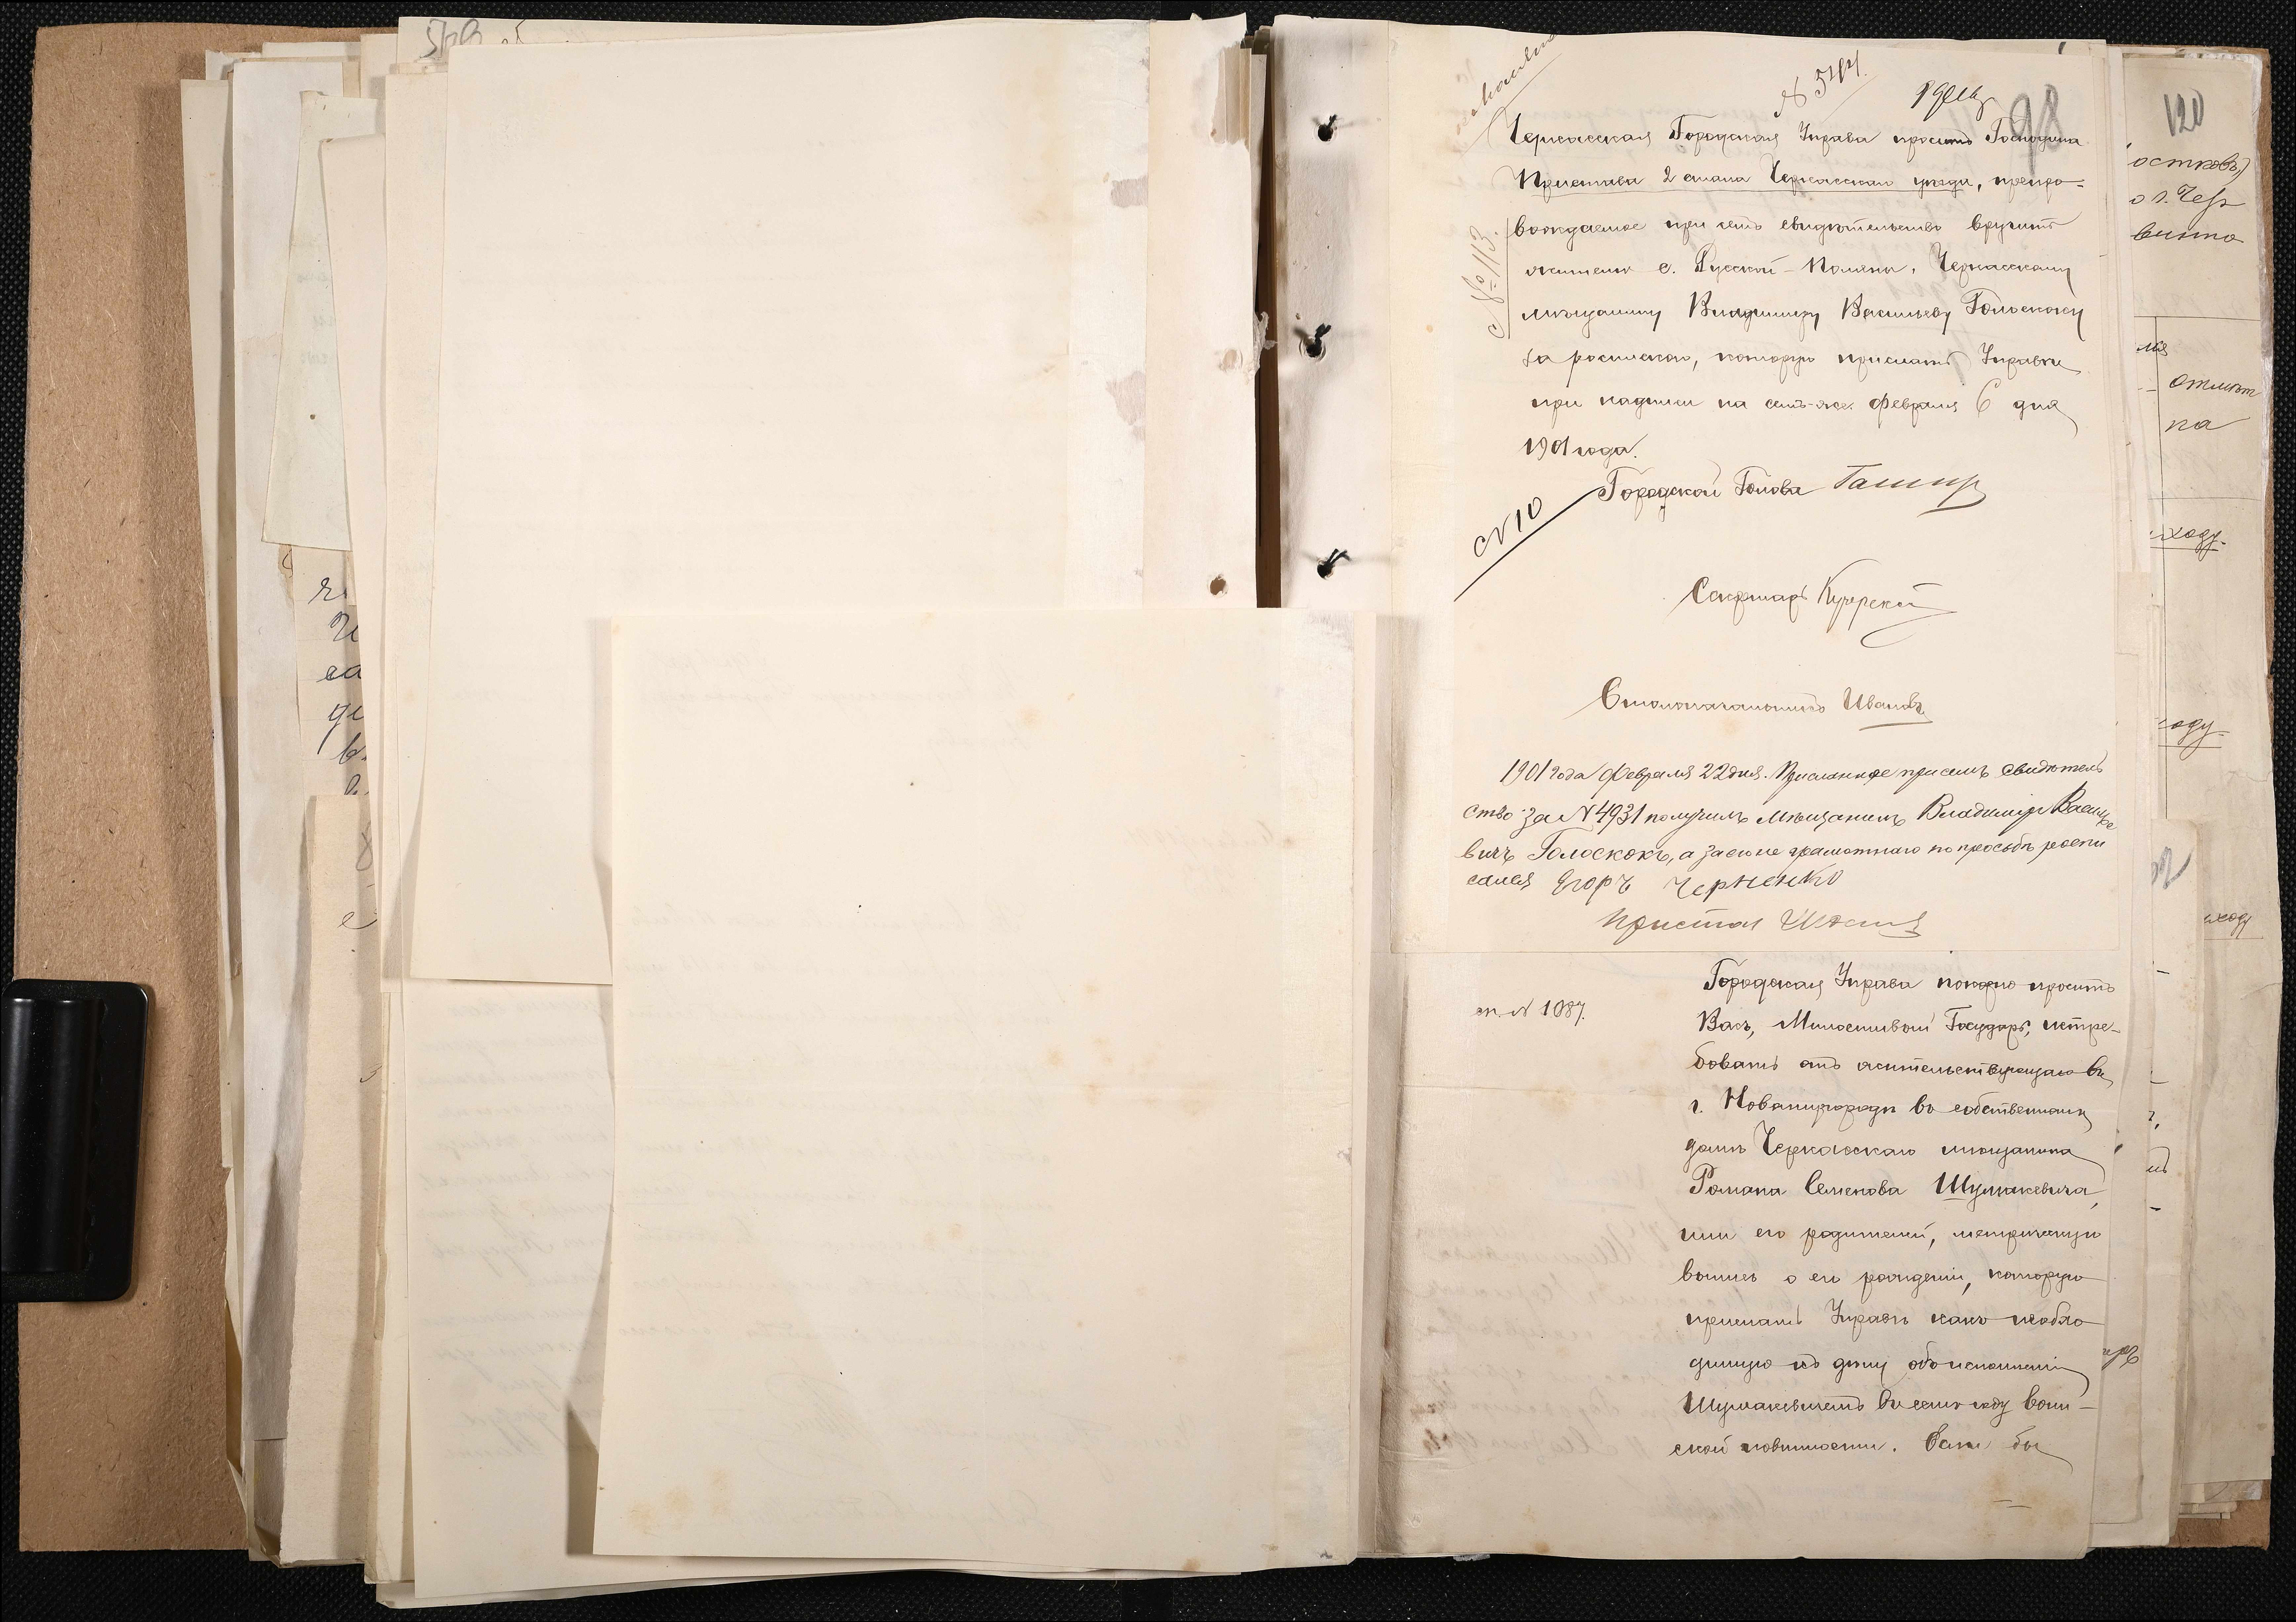 № 5194.
98
Черкасская Городская Управа проситъ Господина
Пристава 2 стана Черкасскаго уѣзда, препро-
вождаемое при семъ свидѣтельство вручить
№ 113.
жителю с. Русской-Поляны, Черкасскому
мѣщанину Владиміру Васильеву Голоскоку
подъ росписку, которую прислать Управѣ
при надписи на семъ-же. Февраля 6 дня
1901 года.
Городской Голова
№ 10
Секретарь
Столоначальникъ Ивановъ
1901 года февраля 22 дня. Присланное при семъ свидѣтель
ство за № 4931 получилъ мѣщанинъ Владиміръ Василье
вичъ Голоскокъ, а за него не грамотнаго по просьбѣ роспи
сался Егоръ Черненко
Приставъ
ст. № 1087.
Городская Управа покорно проситъ
Васъ, Милостивый Государь, истре-
бовать отъ жительствующаго въ
г. Новомиргородѣ въ собственномъ
домѣ Черкасскаго мѣщанина
Романа Семенова Шумакевича,
или его родителей, метрическую
выпись о его рожденіи, которую
прислать Управѣ какъ необхо
димую къ дѣлу объ исполненіи
Шумакевичемъ въ семъ году воин-
ской повинности. Если бы
120
островъ)
о г. Чер
отмѣт
на
ходу.
ходу
ходу